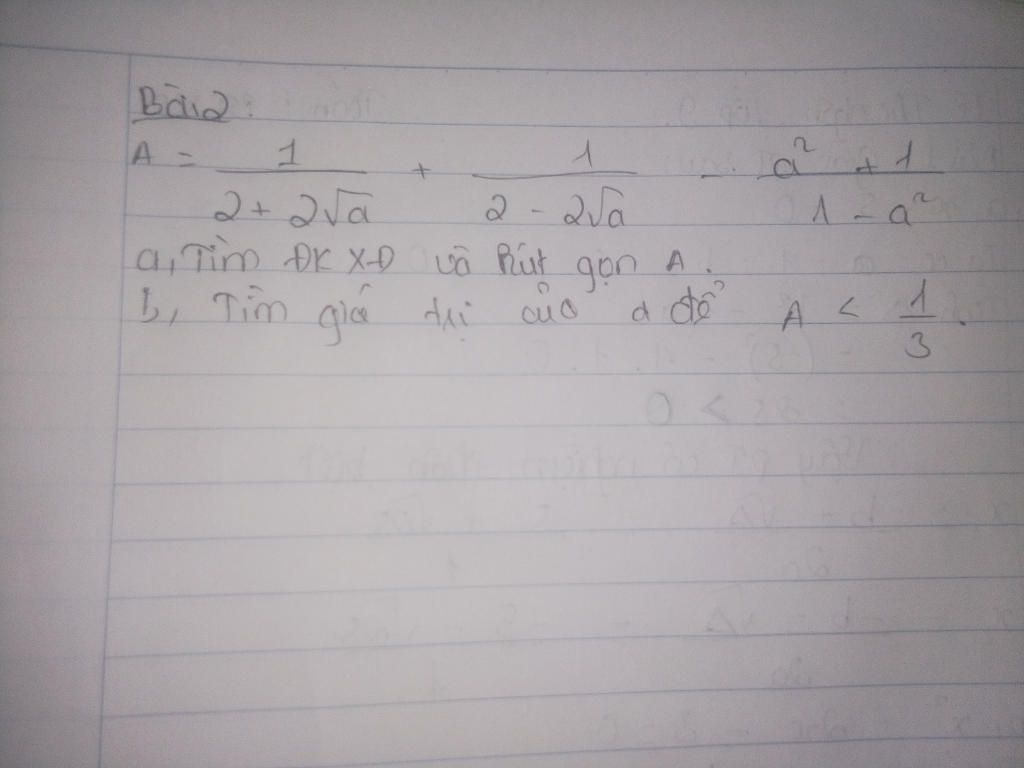 Bài 2:
A = \frac{1}{2 + 2\sqrt{a}} + \frac{1}{2 - 2\sqrt{a}} - \frac{a^2 + 1}{1 - a^2}
a, Tìm ĐKXĐ và Rút gọn A.
b, Tìm giá trị của a để A < \frac{1}{3}.